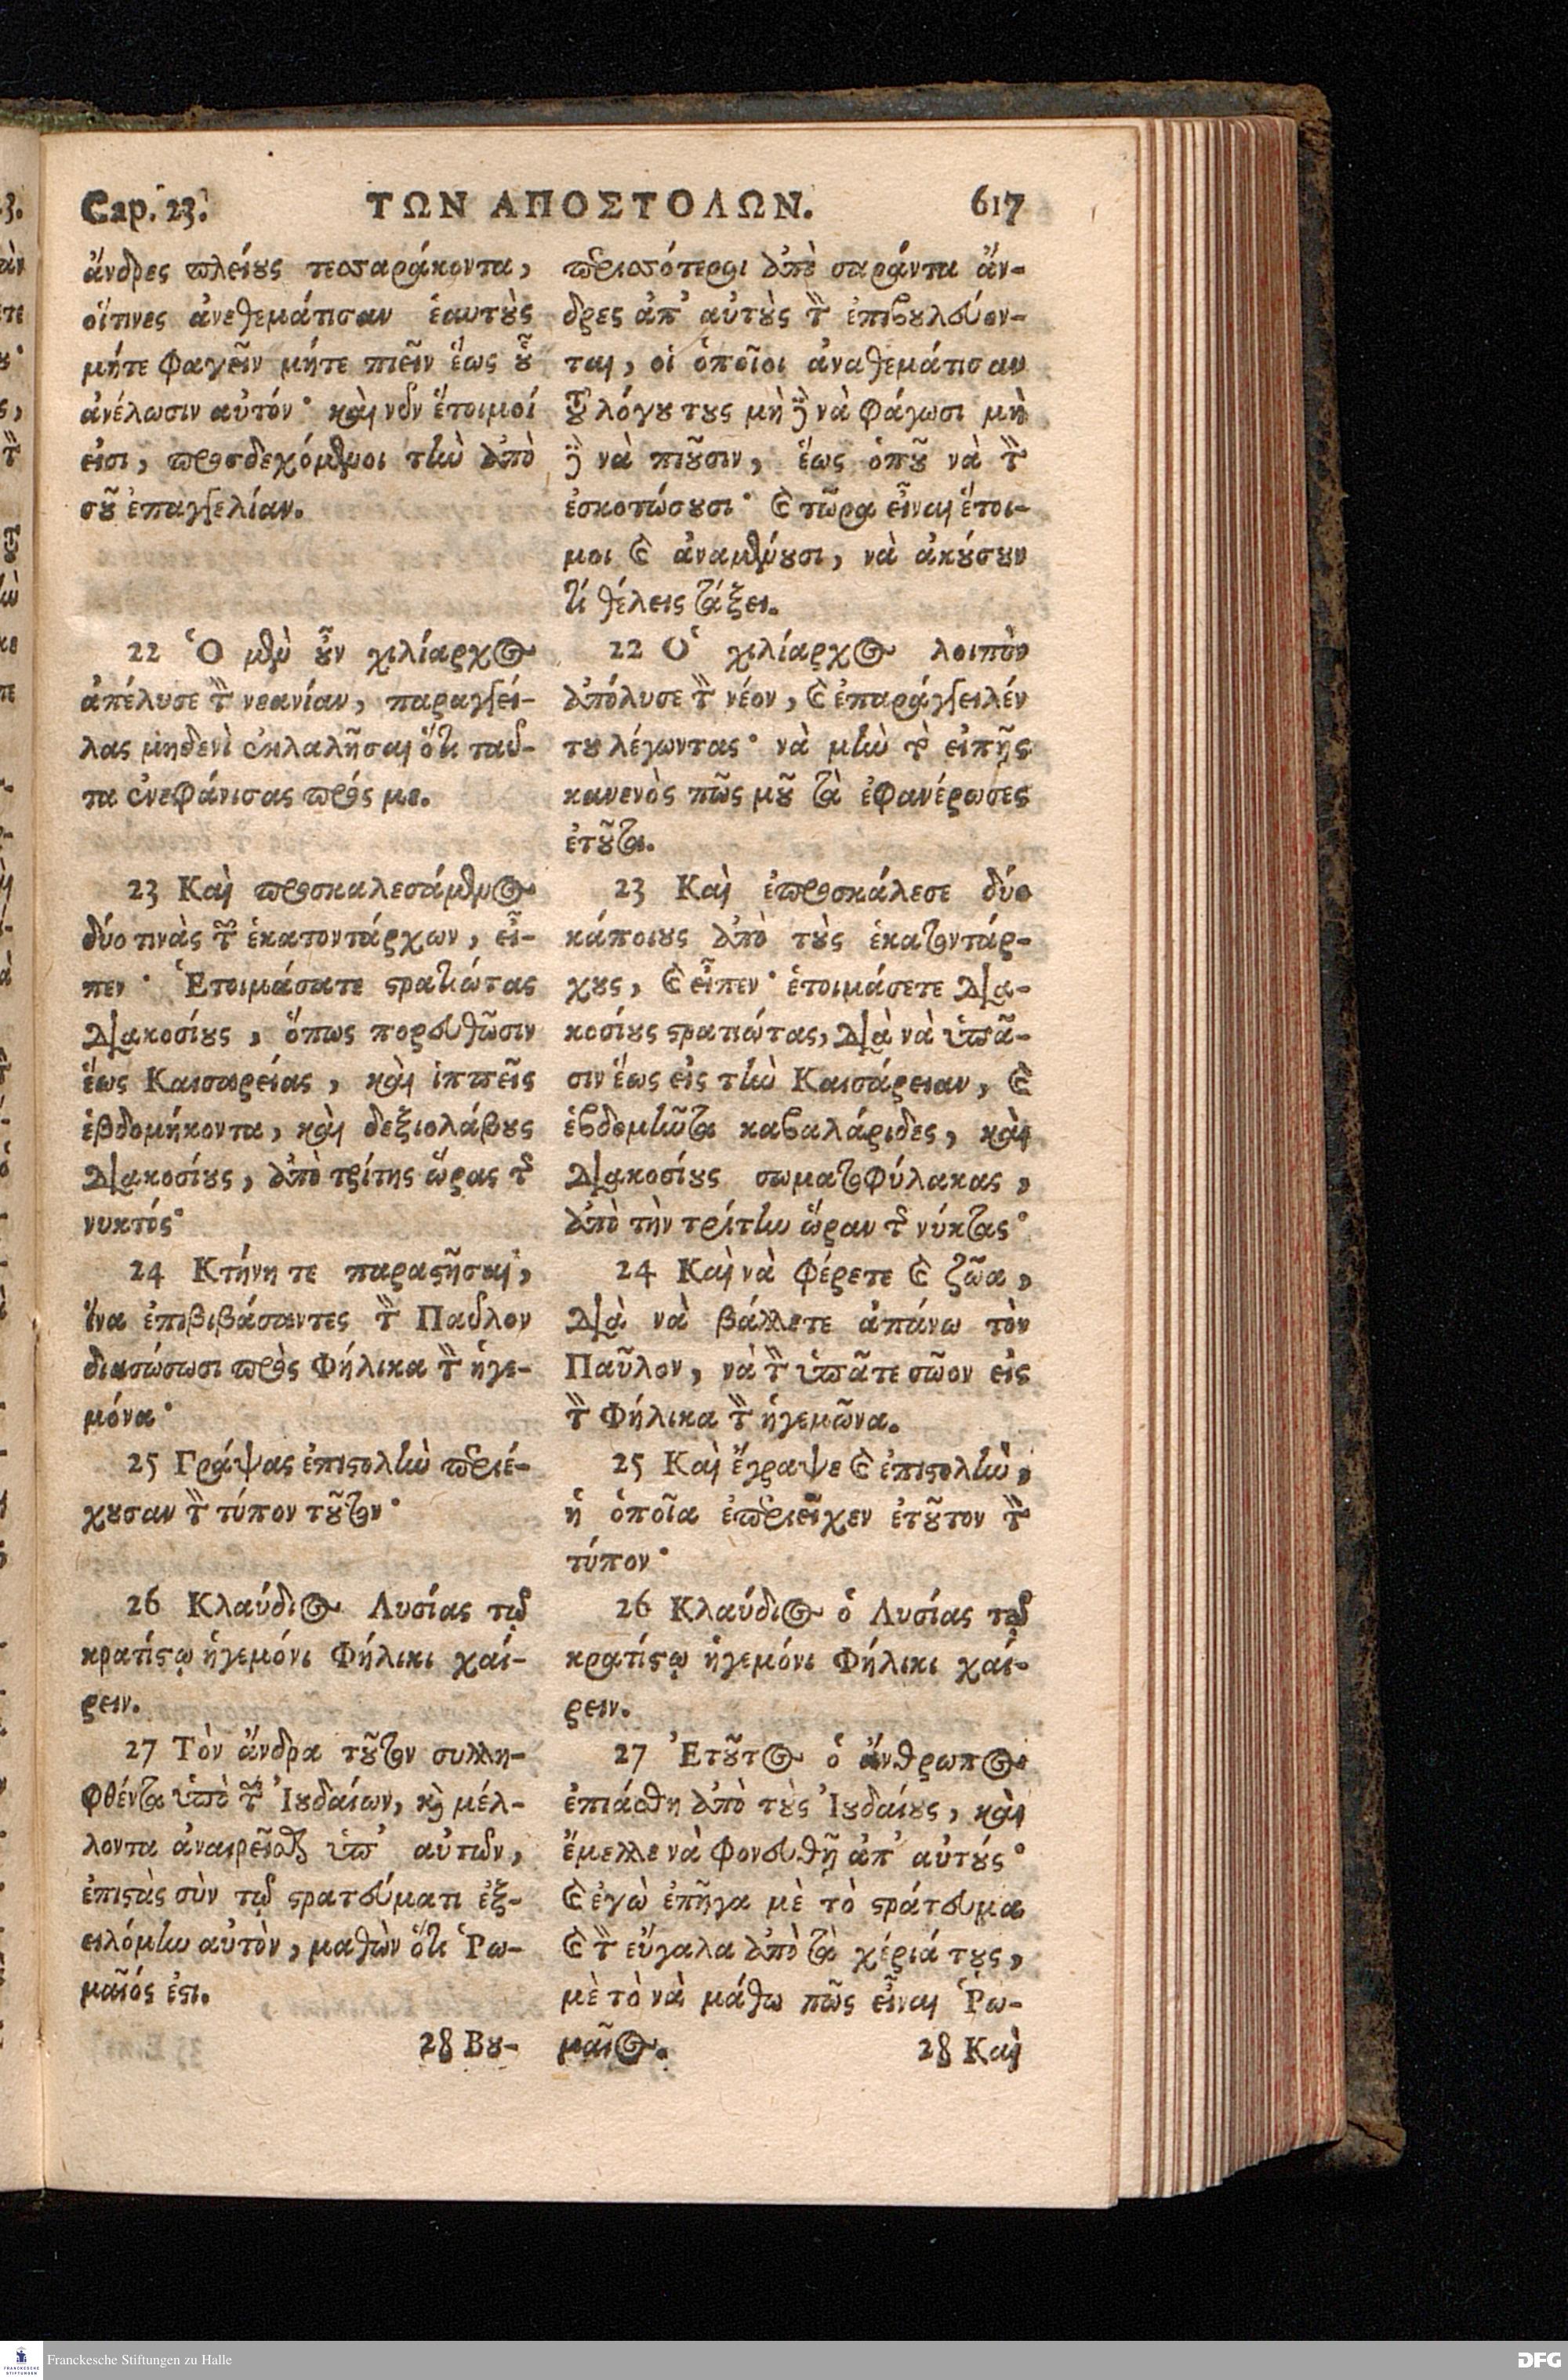 Cap. 23. ΤΩΝ ΑΠΟΣΤΟΛΩΝ. 617
ἄνδρες πλείȣς τεσσαράκοντα,
οἵτινες ἀνεθεμάτισαν ἑαυτȣ̀ς
μήτε φαγεῖν μήτε πιεῖν ἕως ȣ̔͂
ἀνέλωσιν αὐτόν· καὶ νῦν ἕτοιμοί
εἰσι, προσδεχόμενοι τὴν ἀπὸ
σȣ͂ ἐπαγγελίαν.
22 Ὁ μὲν ȣ̓͂ν χιλίαρχος
ἀπέλυσε τὸν νεανίαν, παραγγεί-
λας μηδενὶ ἐκλαλῆσαι ὅτι ταῦ-
τα ἐνεφάνισας πρός με.
23 Καὶ προσκαλεσάμενος
δύο τινὰς τῶν ἑκατοντάρχων, εἶ-
πεν· Ἑτοιμάσατε ϛρατιώτας
διακοσίȣς, ὅπως πορευθῶσιν
ἕως Καισαρείας, καὶ ἱππεῖς
ἑβδομήκοντα, καὶ δεξιολάβȣς
διακοσίȣς, ἀπὸ τρίτης ὥρας τῆς
νυκτός·
24 Κτήνη τε παραϛῆσαι,
ἵνα ἐπιβιβάσαντες τὸν Παῦλον
διασώσωσι πρὸς Φήλικα τὸν ἡγε-
μόνα·
25 Γράψας ἐπιϛολὴν περιέ-
χȣσαν τὸν τύπον τȣ͂τον·
26 Κλαύδιος Λυσίας τῷ
κρατίϛῳ ἡγεμόνι Φήλικι χαί-
ρειν.
27 Τὸν ἄνδρα τȣ͂τον συλλη-
φθέντα ὑπὸ τῶν Ἰȣδαίων, καὶ μέλ-
λοντα ἀναιρεῖσθαι ὑπ' αὐτῶν,
ἐπιϛὰς σὺν τῷ ϛρατεύματι ἐξ-
ειλόμην αὐτὸν, μαθὼν ὅτι Ῥω-
μαῖός ἐϛι.
28 Βȣ-
περισσότεροι ἀπὸ σαράντα ἄν-
δρες ἀπ' αὐτȣ̀ς τὸν ἐπιβȣλεύον-
ται, οἱ ὁποῖοι ἀναθεμάτισαν
τȣ͂ λόγȣ τȣς μὴτε νὰ φάγωσι μὴ
τε νὰ πιȣ͂σιν, ἕως ὁπȣ͂ νὰ τὸν
ἐσκοτώσȣσι· καὶ τῶρα εἶναι ἕτοι-
μοι καὶ ἀναμένȣσι, νὰ ἀκȣ́σȣν
τί θέλεις τάξει.
22 Ὁ χιλίαρχος λοιπὸν
ἀπόλυσε τὸν νέον, καὶ ἐπαράγγειλέν
τȣ λέγωντας· νὰ μὴν τὸ εἰπῇς
κανενὸς πῶς μȣ͂ τὰ ἐφανέρωσες
ἐτȣ͂τα.
23 Καὶ ἐπροσκάλεσε δύο
κάποιȣς ἀπὸ τȣ̀ς ἑκατοντάρ-
χȣς, καὶ εἶπεν· ἑτοιμάσετε δια-
κοσίȣς ϛρατιώτας, διὰ νὰ ὑπᾶ-
σιν ἕως εἰς τὴν Καισάρειαν, καὶ
ἑβδομῆντα καβαλάριδες, καὶ
διακοσίȣς σωματοφύλακας,
ἀπὸ τὴν τρίτην ὥραν τῆς νύκτας·
24 Καὶ νὰ φέρετε καὶ ζῶα,
διὰ νὰ βάλλετε ἀπάνω τὸν
Παῦλον, νὰ τὸν ὑπᾶτε σῶον εἰς
τὸν Φήλικα τὸν ἡγεμῶνα.
25 Καὶ ἔγραψε καὶ ἐπιϛολὴν,
ἡ ὁποῖα ἐπεριεῖχεν ἐτȣ͂τον τὸν
τύπον·
26 Κλαύδιος ὁ Λυσίας τῷ
κρατίϛῳ ἡγεμόνι Φήλικι χαί-
ρειν.
27 Ἐτȣ͂τος ὁ ἄνθρωπος
ἐπιάσθη ἀπὸ τȣ̀ς Ἰȣδαίȣς, καὶ
ἔμελλε νὰ φονευθῇ ἀπ' αὐτȣ́ς·
καὶ ἐγὼ ἐπῆγα μὲ τὸ ϛράτευμα
καὶ τὸν εὔγαλα ἀπὸ τὰ χέριά τȣς,
μὲ τὸ νὰ μάθω πῶς εἶναι Ῥω-
μαῖος.
28 Καὶ
Franckesche Stiftungen zu Halle
DFG